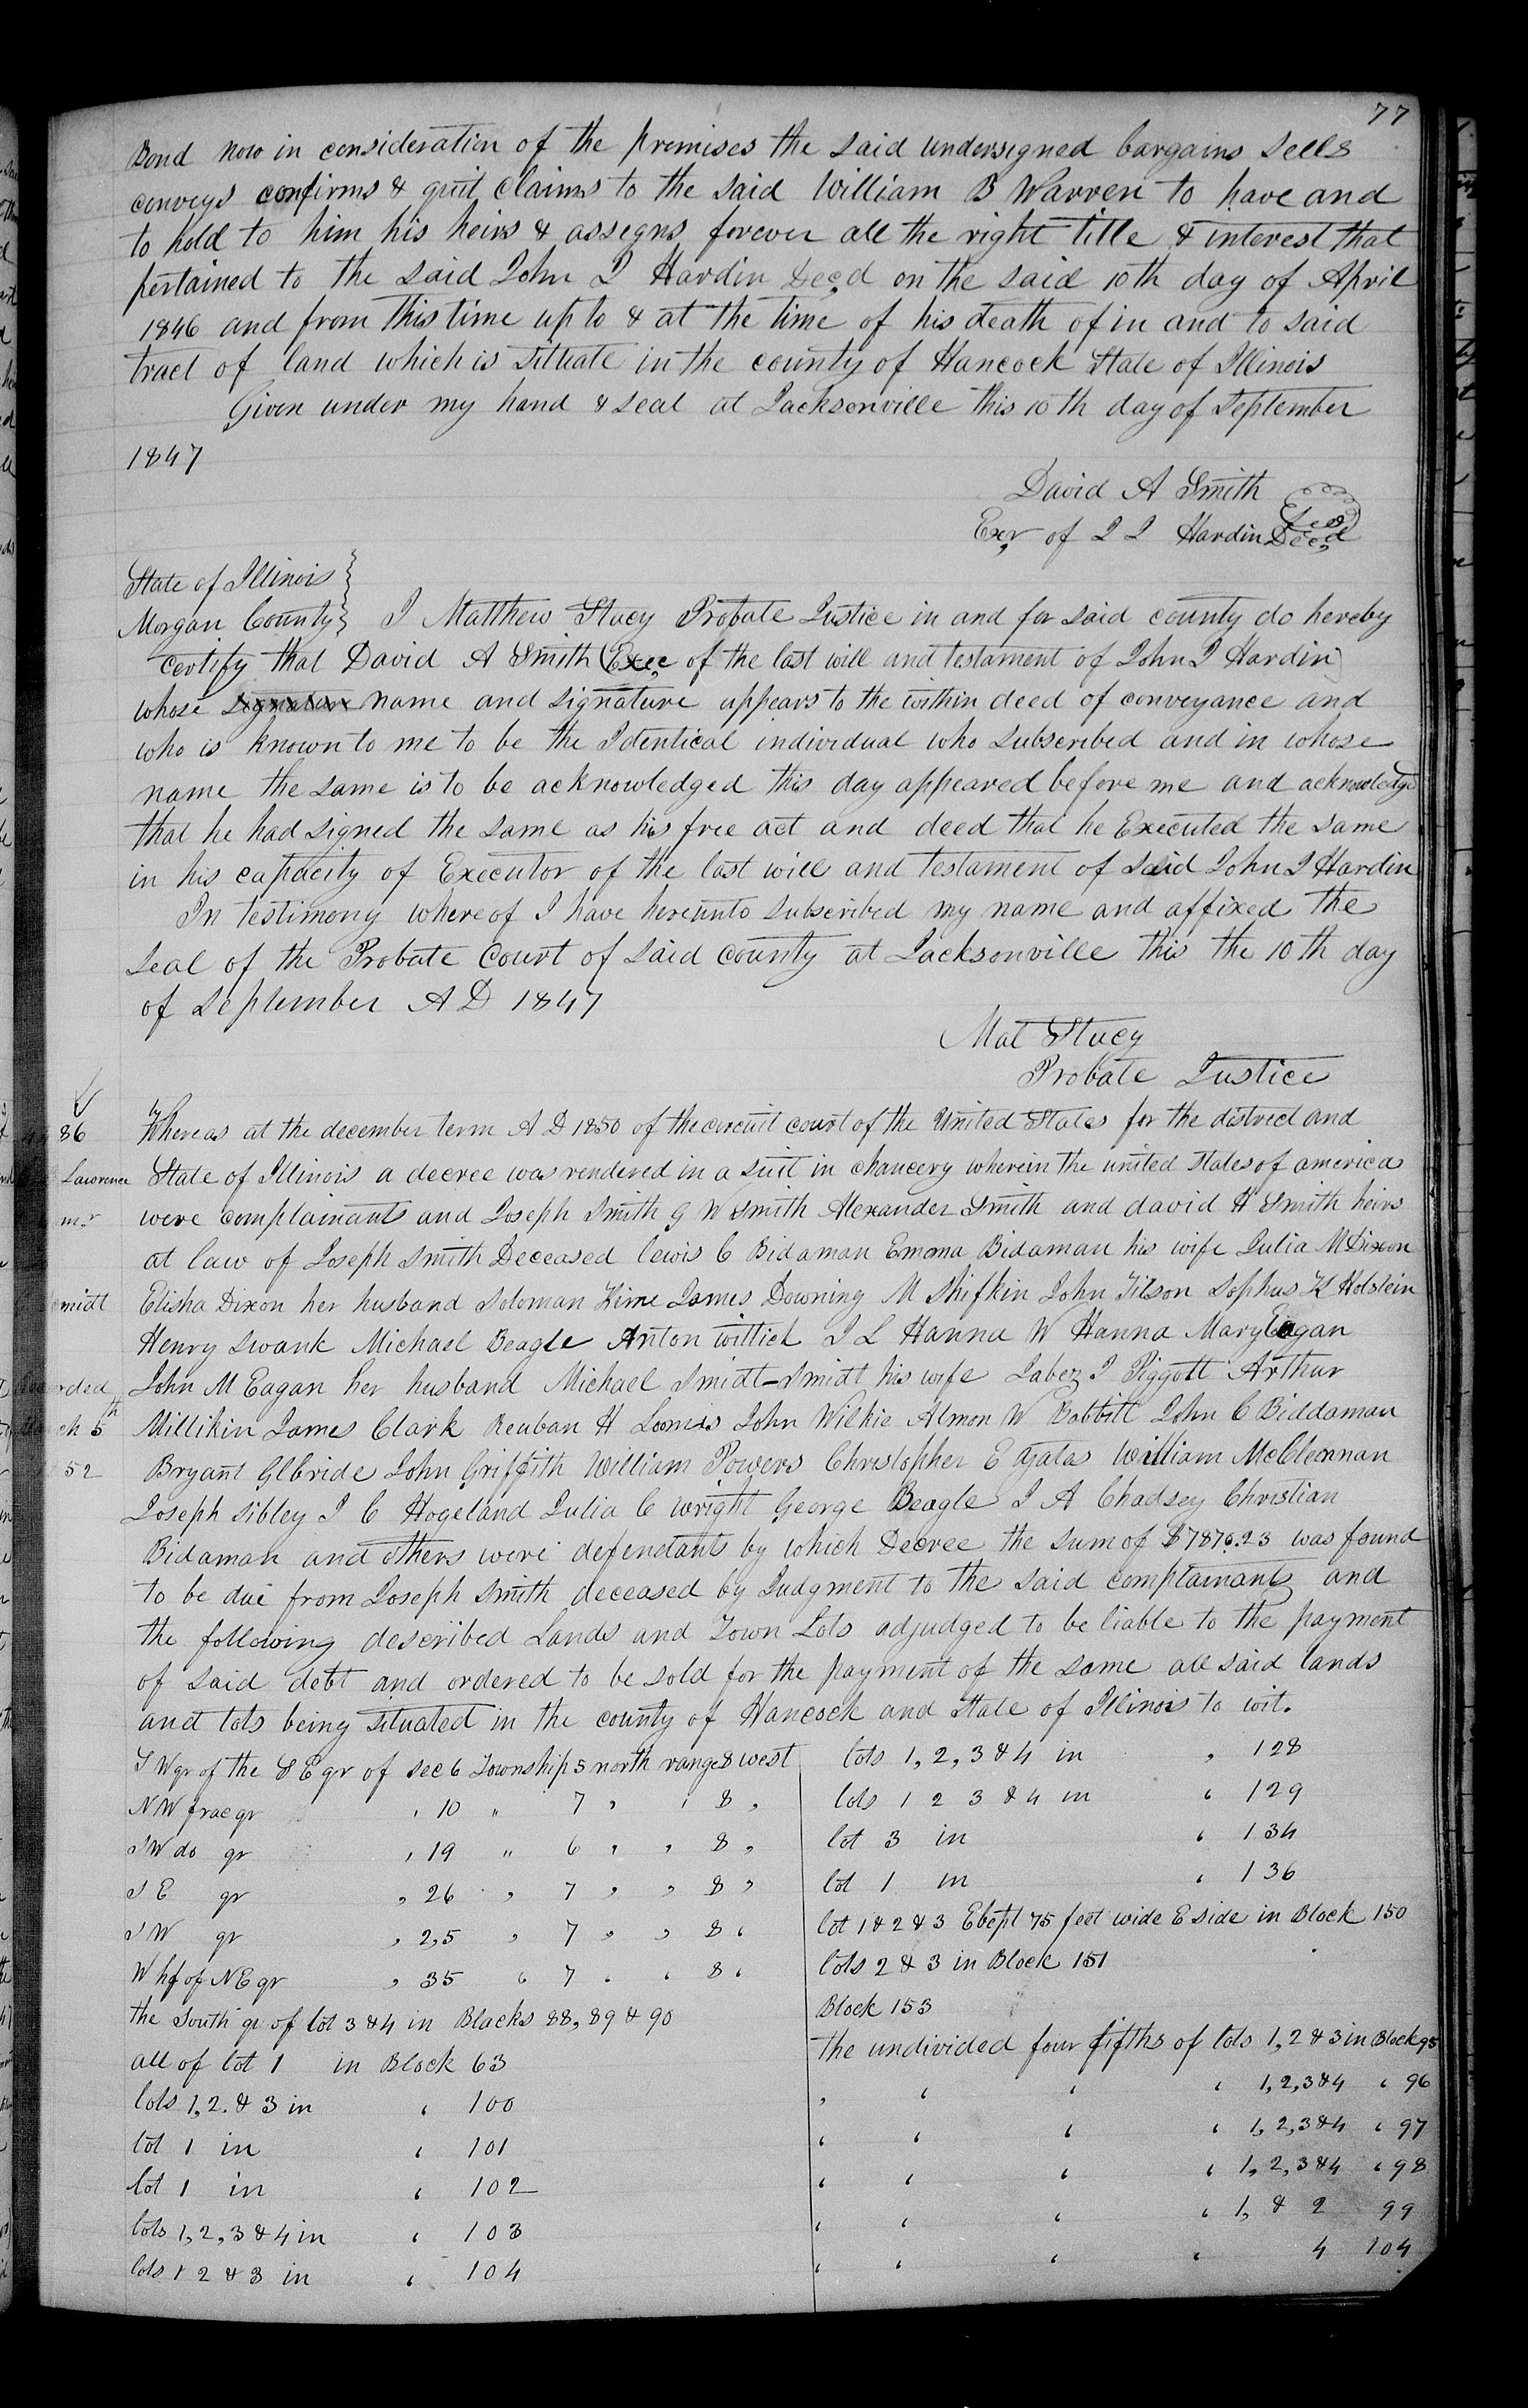 77
Bond now in consideration of the premises the said undersigned bargains sells
conveys confirms & quit claims to the said William B Warren to have and
to hold to him his heirs & assegns forever all the right title & interest that
pertained to the said John J Hardin Decd on the said 10th day of April
1846 and from this time up to & at the time of his death of in and to said
tract of land which is situate in the county of Hancock State of Illinois
Given under my hand & seal at Jacksonville this 10th day of September
1847
David A Smith
Exr of J J Hardin Decd
State of Illinois
Morgan County I Matthew Stacy Probate Justice in and for said county do hereby
certify that David A Smith (Exec of the last will and testament of John J Hardin)
whose signature name and signature appears to the within deed of conveyance and
who is known to me to be the Identical individual who subscribed and in whose
name the same is to be acknowledged this day appeared before me and acknowledgd
that he had signed the same as his free act and deed that he Executed the same
in his capacity of Executor of the last will and testament of said John J Hardin
In testimony whereof I have hereunto subscribed my name and affixed the
seal of the Probate Court of said county at Jacksonville this the 10th day
of September A D 1847
Mat Stacy
Probate Justice
86
Whereas at the december term A D 1850 of the circuit court of the United States for the district and
Lawrence
State of Illinois a decree was rendered in a suit in chancery wherein the united States of america
were complainants and Joseph Smith G W Smith Alexander Smith and david H Smith heirs
at law of Joseph Smith Deceased lewis C Bidaman Emma Bidaman his wife Julia M Dixon
midt
Elisha Dixon her husband Soloman Kime James Downing M Shifkin John Tilson Sophus K Holstein
Henry Swank Michael Beagle Anton wittich J L Hanna W Hanna Mary Eagan
rded
John M Eagan her husband Michael Smidt-Smidt his wife Jabez J Piggott Arthur
ch 5th
Millikin James Clark Reuban H Loomis John Wilkie Almon W Babbitt John C Biddaman
52
Bryant Glbride John Griffith William Powers Christopher E Yates William McClennan
Joseph Sibley J C Hogeland Julia C Wright George Beagle J A Chadsey Christian
Bidaman and others were defendants by which Decree the sum of $7870.23 was found
to be due from Joseph Smith deceased by Judgment to the said complainants and
the following described Lands and Town Lots adjudged to be liable to the payment
of said debt and ordered to be sold for the payment of the same all said lands
and lots being situated in the county of Hancock and State of Illinois to wit.
S W qr of the S E qr of sec 6 Township 5 north range 8 west
N W frac qr " 10 " 7 " " 8 "
S W do qr " 19 " 6 " " 8 "
S E qr " 26 " 7 " " 8 "
S W qr " 2,5 " 7 " " 8 "
W hf of N E qr " 35 " 7 " " 8 "
the South qr of lot 3 & 4 in Blocks 88, 89 & 90
all of lot 1 in Block 63
lots 1, 2. & 3 in " 100
lot 1 in " 101
lot 1 in " 102
lots 1, 2, 3 & 4 in " 103
lots 1 2 & 3 in " 104
lots 1, 2, 3 & 4 in " 128
lots 1 2 3 & 4 in " 129
lot 3 in " 134
lot 1 in " 136
lot 1 & 2 & 3 Ebept 75 feet wide E side in Block 150
lots 2 & 3 in Block 151
Block 153
The undivided four fifths of lots 1, 2 & 3 in Block 95
" " " " 1, 2, 3 & 4 " 96
" " " " 1, 2, 3 & 4 " 97
" " " " 1, 2, 3 & 4 " 98
" " " " 1, & 2 99
" " " " 4 104